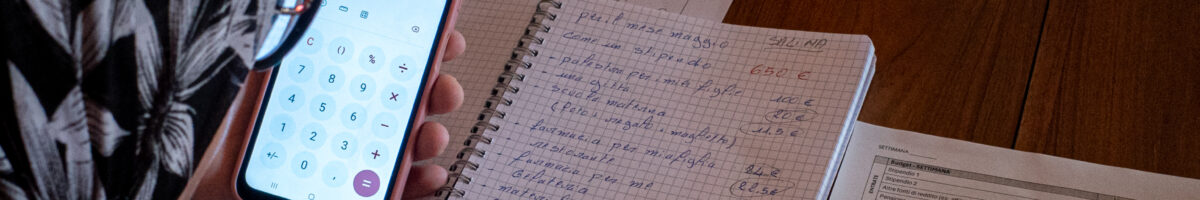 C () % ÷
7 8 9 ×
4 5 6 −
1 2 3 +
+/- 0 , =
per il mese maggio SALINA
come un stipendio 650 €
- palestra per mia figlia 100 €
una gita 20 €
- scuola mattina 11.5 €
(foto, regalo, maglietta)
- farmacia per mia figlia 24 €
- ristorante 22.5 €
farmacia per me
gelateria
SETTIMANA
Budget - SETTIMANA
ENTRATE
Stipendio 1
Stipendio 2
Altre fonti di reddito